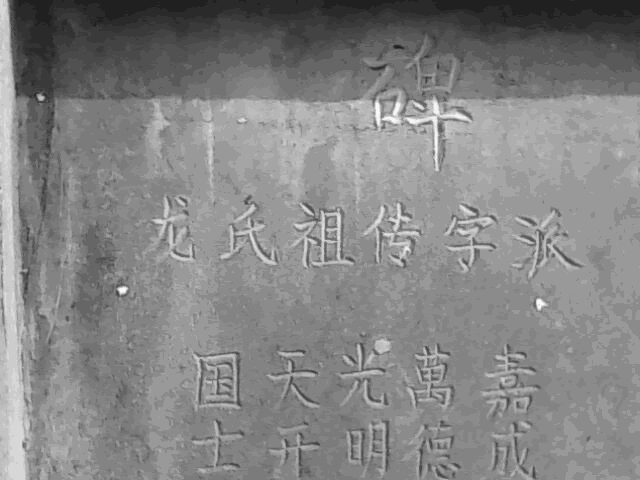 碑
龙氏祖传字派
国天光萬嘉
士开明德成